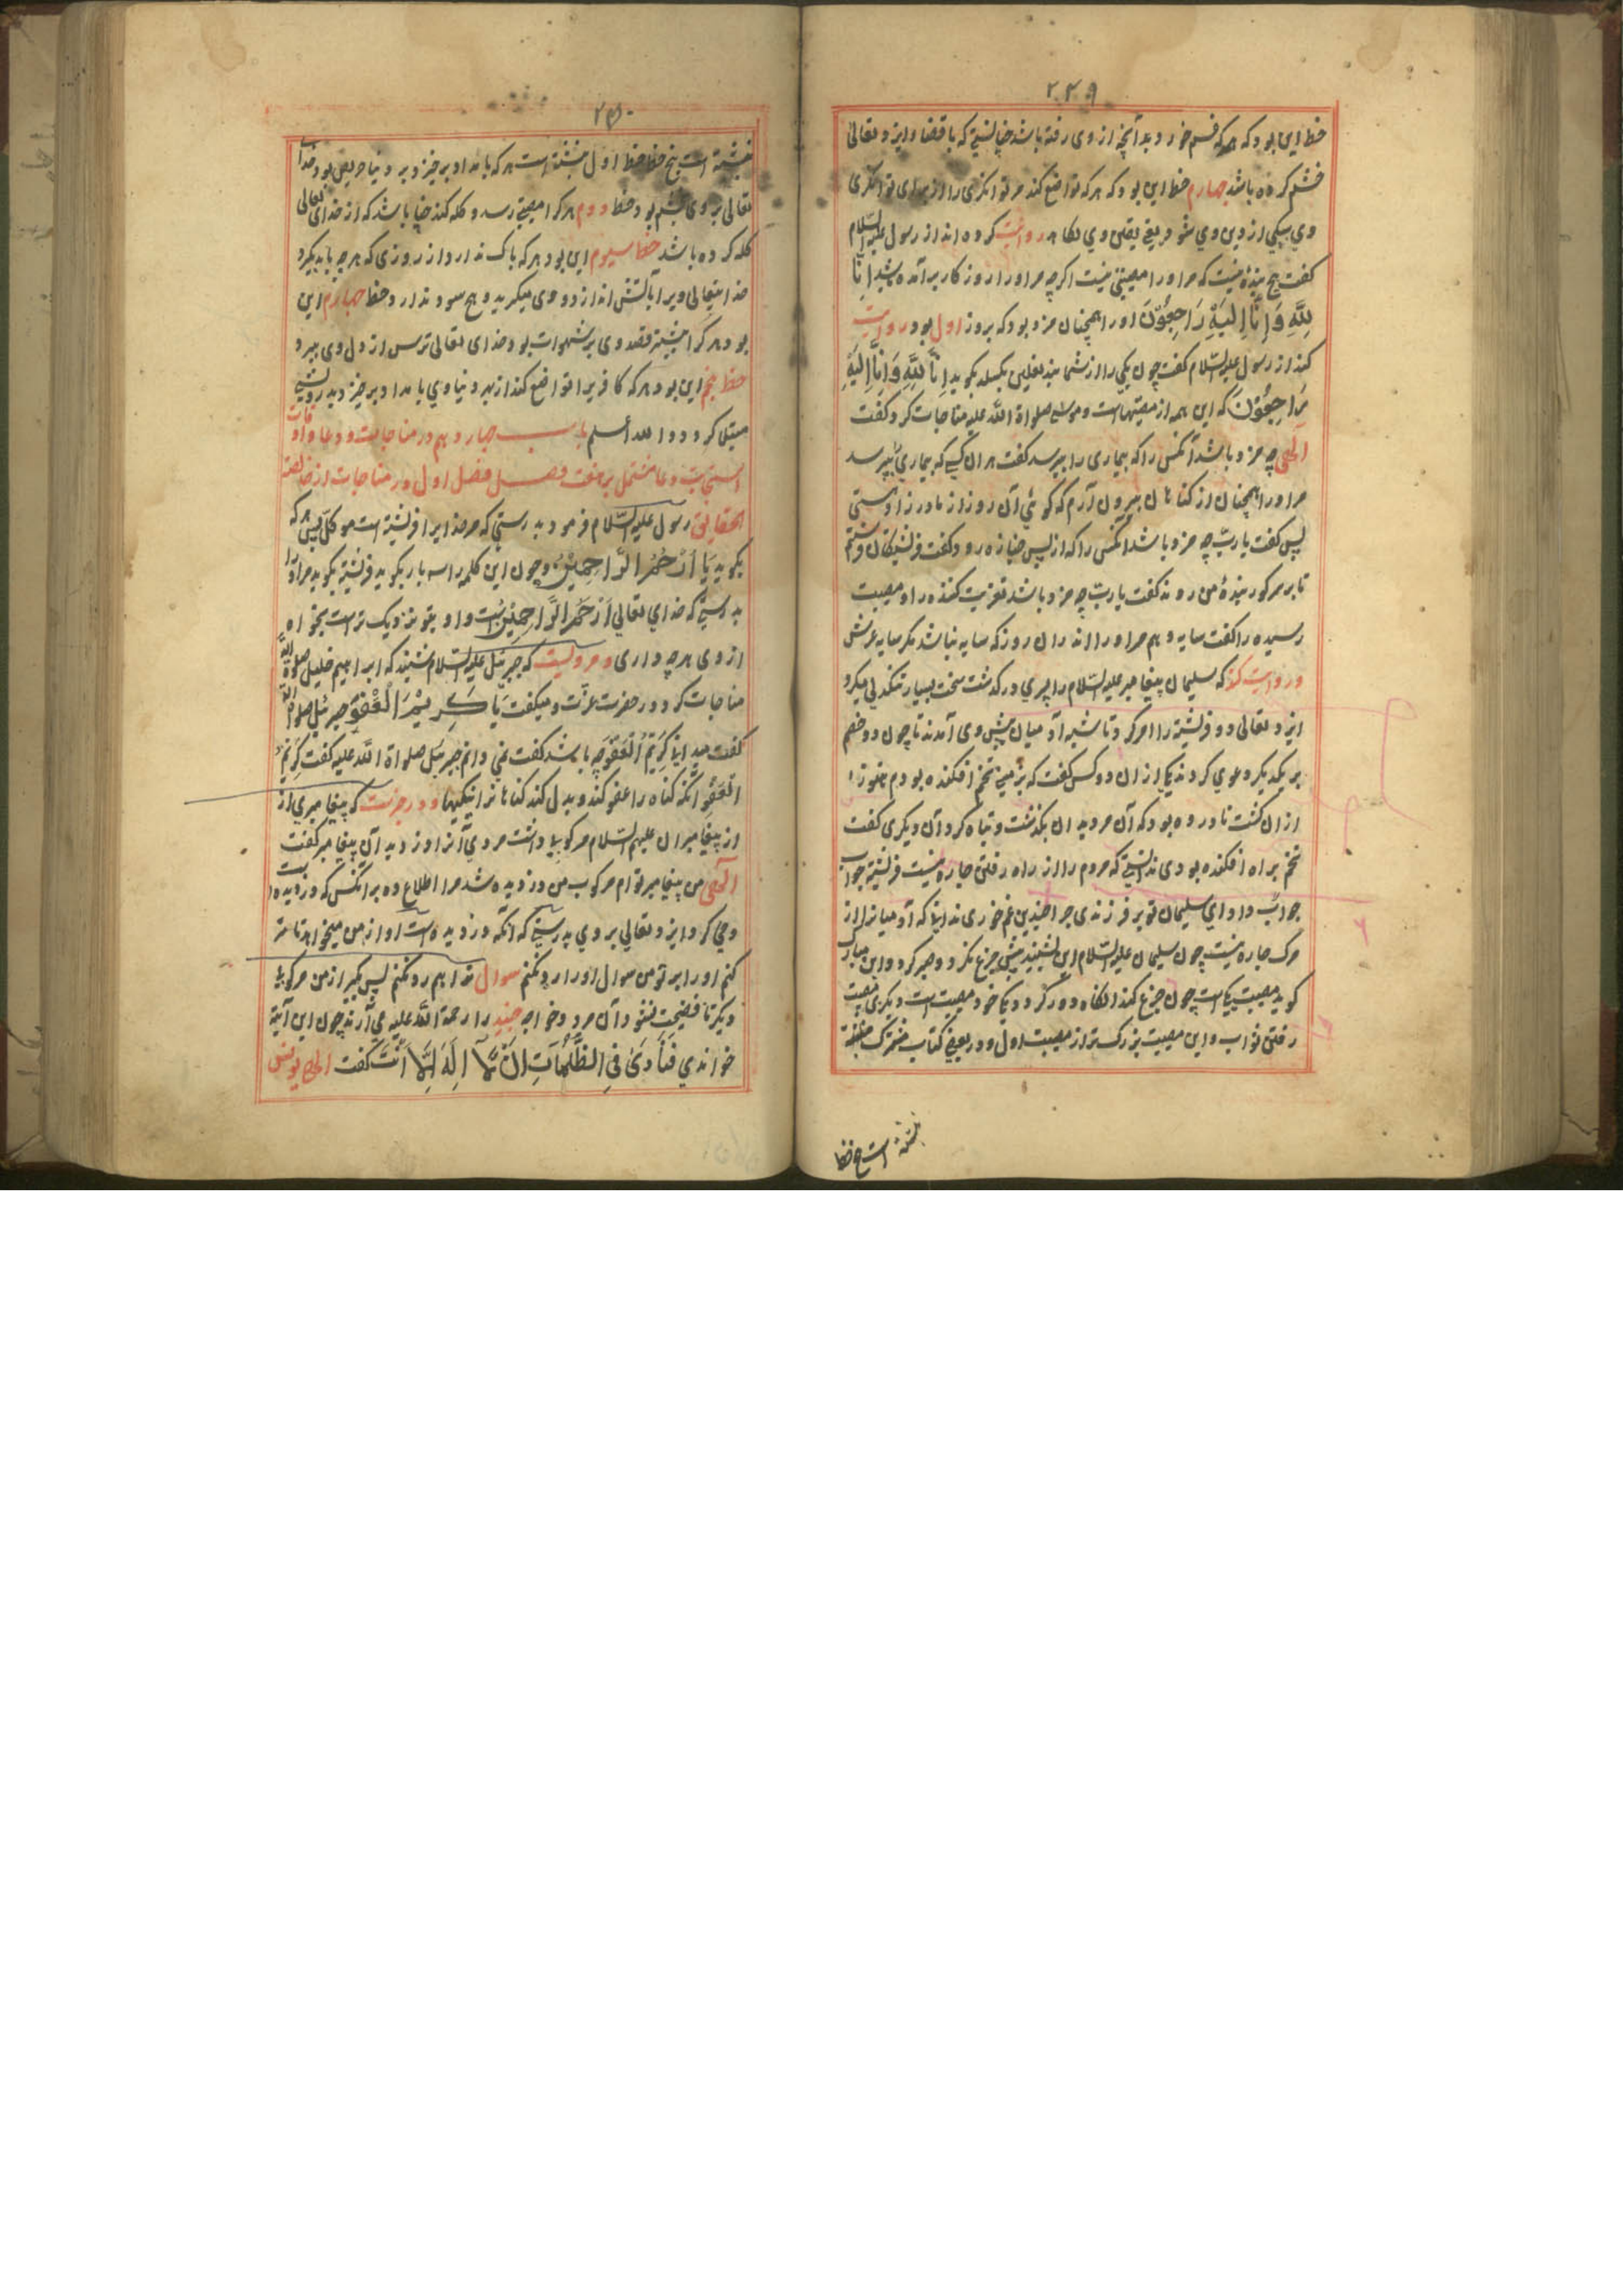 ۲۴۹
خط این بود که هر که قسم خورد بعد آنچه از وی رفته باشد چنانستی که با قضا و ایزد تعالی
خشم کرده باشد چهارم خط این بود که هر که تواضع کند مر توانکری را از برای توانکری
وی سیکی از دین وی شود یعنی یقین وی نکاهد روایت کرده اند از رسول علیه السلام
کفت هیچ بنده نیست که مر او را مصیبتی نیست اکرچه مر او را روزکار برآمده باشد اِنَّا
لِلّٰهِ وَاِنَّا اِلَیْهِ رَاجِعُوْنَ او را همچنان مزد بود که بروز اول بود روایت
کنند از رسول علیه السلام کفت چون یکی را از شما بند نعلین بکسلد بکوید اِنَّا لِلّٰهِ وَاِنَّا اِلَیْهِ
رَاجِعُوْنَ که این همه از مصیبتهاست و موسی صلواة اللّه علیه مناجات کرد و کفت
الٰهی چه مزد باشد آنکس را که بیماری را بپرسد کفت هر آن کسی که بیماری بپرسد
مر او را همچنان از کناهان بیرون آرم که کوئی آن روز از مادر زادستی
پس کفت یا ربّ چه مزد باشد آنکس را که از پس جنازه رود کفت فرشتکان فرستم
تا بر سر کور بندهٔ من روند کفت یا ربّ چه مزد باشد تعزیت کننده را و مصیبت
رسیده را کفت سایه دهم مر او را اندران روز که سایه نباشد مکر سایه عرش
و روایت کنند که سلیمان پیغامبر علیه السلام را پسری درکذشت سخت بسیار تنکدلی میکرد
ایزد تعالی دو فرشته را امر کرد تا شبه آدمیان پیش وی آمدند تا چون دو خصم
بر یکدیکر دعوی کردند یکی از ان دو کس کفت که بزمینی تخم افکنده بودم هنوز
از ان کشت نادروده بود که آن مرد بدان بکذشت و تباه کرد آن دیکری کفت
تخم براه افکنده بودی ندانستی که مردم را از راه رفتن چاره نیست فرشته جواب
جواب داد ای سلیمان تو بر فرزندی چرا چندین غم خوری ندانی که آدمیان را از
مرک چاره نیست چون سلیمان علیه السلام این بشنید بیش جزع نکرد و صبر کرد و ابن مبارک
کوید مصیبت یکی است چون جزع کند انکاه دو کردد یکی خود مصیبت است دیکری مصیبت
رفتن ثواب و این مصیبت بزرک تر از مصیبت اول و در بعضی کتاب
نبشته است پنج خط
۲۵۰
نبشته است پنج خط خط اول نبشته است هر که بامداد برخیزد بر دنیا حریص بود خدا
تعالی بر وی بخشم بود خط دوم هر کرا مصیبتی رسد و کله کند چنان باشد که از خدای تعالی
کله کرده باشد خط سیوم این بود هر که باک ندارد از روزی که هر چه یابد بکیرد
خدایتعالی ویرا بآتش اندازد و وی میکرید و هیچ سود ندارد خط چهارم این
بود هر کرا بیشتر قصد وی بر شهوات بود خدای تعالی ترس از دل وی ببرد
خط پنجم این بود هر که کافریرا تواضع کند از بهر دنیاوی بامداد برخیزد بدرویشی
مبتلا کردد و اللّه أسلم باب چهاردهم در مناجات و دعا و اوقات
استجابت دعا مشتمل بر هفت فصل فصل اول در مناجات
رسول علیه السلام فرمود بدرستی که مر خدایرا فرشته است موکل بهر که
بکوید یَا اَرْحَمَ الرَّاحِمِیْنَ و چون این کلمه را سه بار بکوید فرشته بکوید مر او را
بدرستی که خدای تعالی اَرْحَمَ الرَّاحِمِیْنَ است و او بتو نزدیک تر است بخواه
از وی هر چه داری و مرویست که جبرئیل علیه السلام شنید که ابراهیم خلیل صلواة اللّه
مناجات کرد در حضرت عزّت و میکفت یَا کَرِیْمَ الْعَفْوِ جبرئیل صلواة اللّه
کفت میدانی کَرِیْمُ الْعَفْوِ چه باشد کفت نمی دانم جبرئیل صلواة اللّه علیه کفت کَرِیْمُ
الْعَفْوِ آنکه کناه را عفو کند و بدل کند کناهانرا نیکیها و در خبرست که پیغامبری از
از پیغامبران علیهم السلام مرکوبی داشت مردی آنرا دزدید آن پیغامبر کفت
الٰهی من پیغامبر توام مرکوب من دزدیده شد مرا اطلاع ده بر آنکس که دزدیده است
وحی کرد ایزد تعالی بر وی بدرستی که آنکه دزدیده است او از من میخواهد تا ستر
کنم او را بر تو من سوال او را رد نکنم سوال ترا هم رد نکنم پس بکیر از من مرکوبی
دیکر تا فضیحت نشود آن مرد و خواجه جنید را رحمة اللّه علیه می آرند چون این آیة
خواندی فَنَادٰی فِی الظُّلُمَاتِ اَنْ لَّا اِلٰهَ اِلَّا اَنْتَ کفت الهی یونس